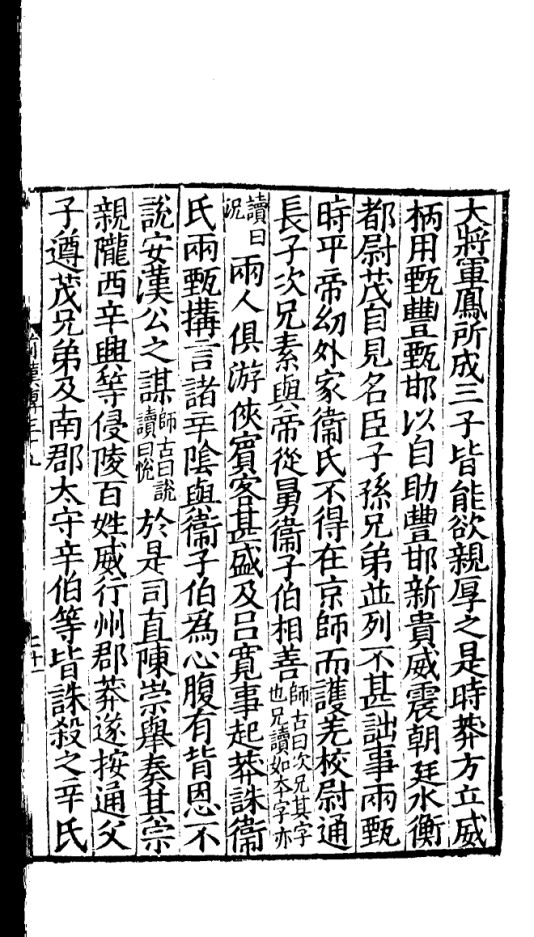 大將軍鳳所成三子皆能欲親厚之是時莽方立威
柄用甄豐甄邯以自助豐邯新貴威震朝廷水衡
都尉茂自見名臣子孫兄弟並列不甚詘事兩甄
時平帝幼外家衞氏不得在京師而護羌校尉通
長子次兄素與帝從舅衞子伯相善師古曰次兄其字也兄讀如本字亦
讀曰況兩人俱游俠賓客甚盛及呂寬事起莽誅衞
氏兩甄搆言諸辛陰與衞子伯為心腹有背恩不
說安漢公之謀師古曰說讀曰悅於是司直陳崇舉奏其宗
親隴西辛興等侵陵百姓威行州郡莽遂按通父
子遵茂兄弟及南郡太守辛伯等皆誅殺之辛氏